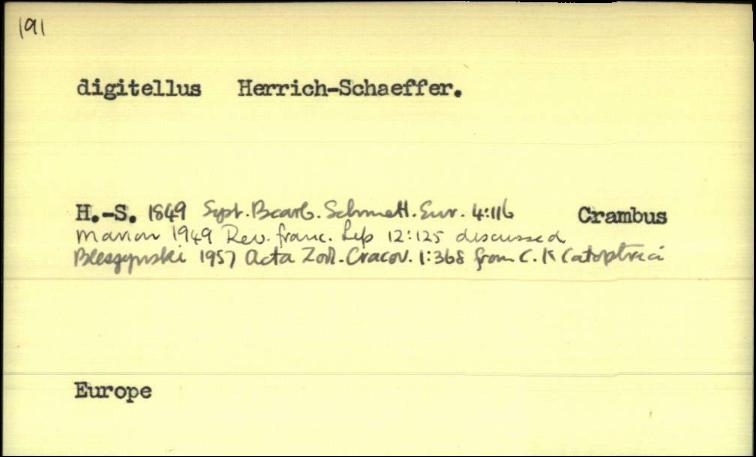 191
digitellus Herrich-Schaeffer.
H.-S. 1849 Syst. Bearb. Schmett. Eur. 4:116 Crambus
Marion 1949 Rev. franc. Lep 12:125 discussed
Bleszynski 1957 Acta Zool. Cracov. 1:368 from C. to Catoptria
Europe